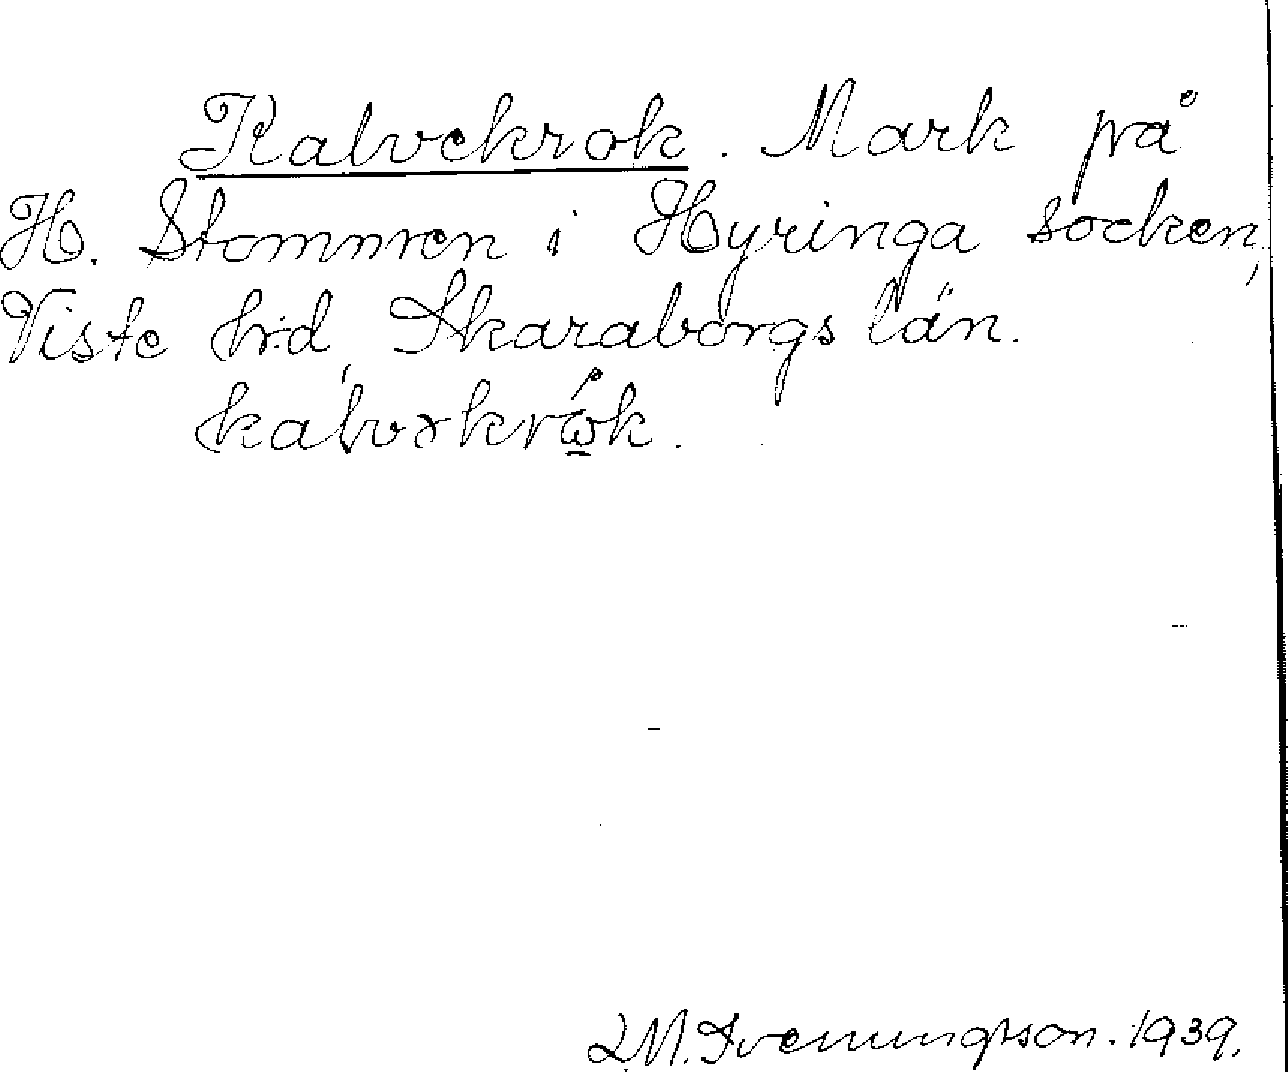 Kalvekrok. Mark på
H. Stommen i Hyringa socken,
Viste h:d, Skaraborgs län.
kalvəkrω̠k.
D.M. Svenningsson. 1939.